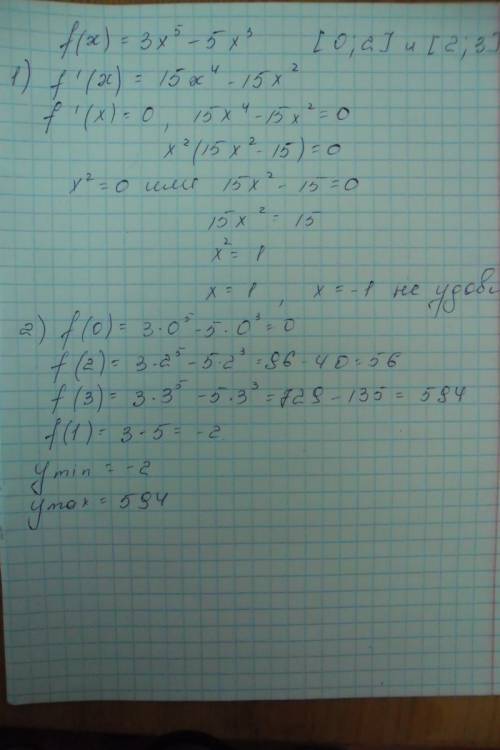 f(x) = 3x⁵ - 5x³ [0; 2] и [2; 3]
1) f'(x) = 15x⁴ - 15x²
f'(x) = 0, 15x⁴ - 15x² = 0
x²(15x² - 15) = 0
x² = 0 или 15x² - 15 = 0
15x² = 15
x² = 1
x = 1, x = -1 не
2) f(0) = 3·0⁵ - 5·0³ = 0
f(2) = 3·2⁵ - 5·2³ = 96 - 40 = 56
f(3) = 3·3⁵ - 5·3³ = 729 - 135 = 594
f(1) = 3 - 5 = -2
ymin = -2
ymax = 594